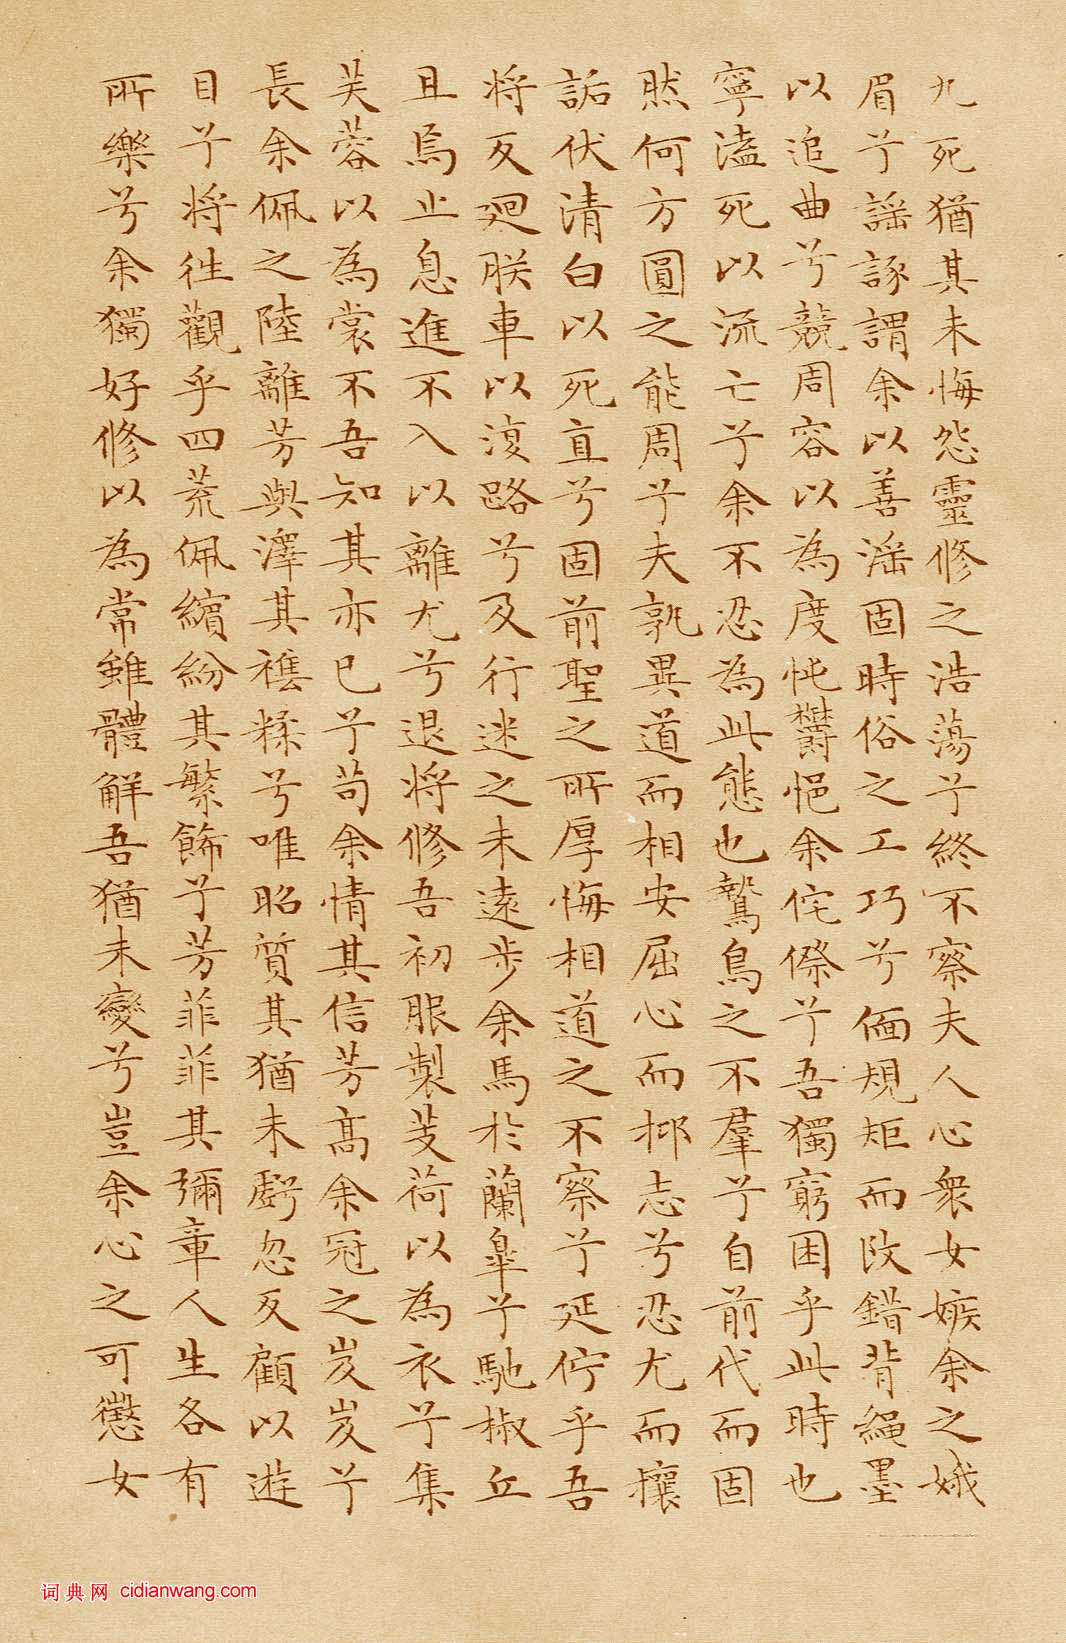 九死猶其未悔怨靈修之浩蕩兮終不察夫人心衆女嫉余之娥
眉兮謡諑謂余以善淫固時俗之工巧兮偭規矩而改錯背繩墨
以追曲兮競周容以為度忳欝悒余侘傺兮吾獨窮困乎此時也
寧溘死以流亡兮余不忍為此態也鷙鳥之不羣兮自前代而固
然何方圓之能周兮夫孰異道而相安屈心而抑志兮忍尤而攘
詬伏清白以死直兮固前聖之所厚悔相道之不察兮延佇乎吾
將反廻朕車以復路兮及行迷之未遠步余馬於蘭皐兮馳椒丘
且焉止息進不入以離尤兮退將修吾初服製芰荷以為衣兮集
芙蓉以為裳不吾知其亦已兮苟余情其信芳高余冠之岌岌兮
長余佩之陸離芳與澤其襍糅兮唯昭質其猶未虧忽反顧以遊
目兮將往觀乎四荒佩繽紛其繁飾兮芳菲菲其彌章人生各有
所樂兮余獨好修以為常雖體解吾猶未變兮豈余心之可懲女
词典网 cidianwang.com